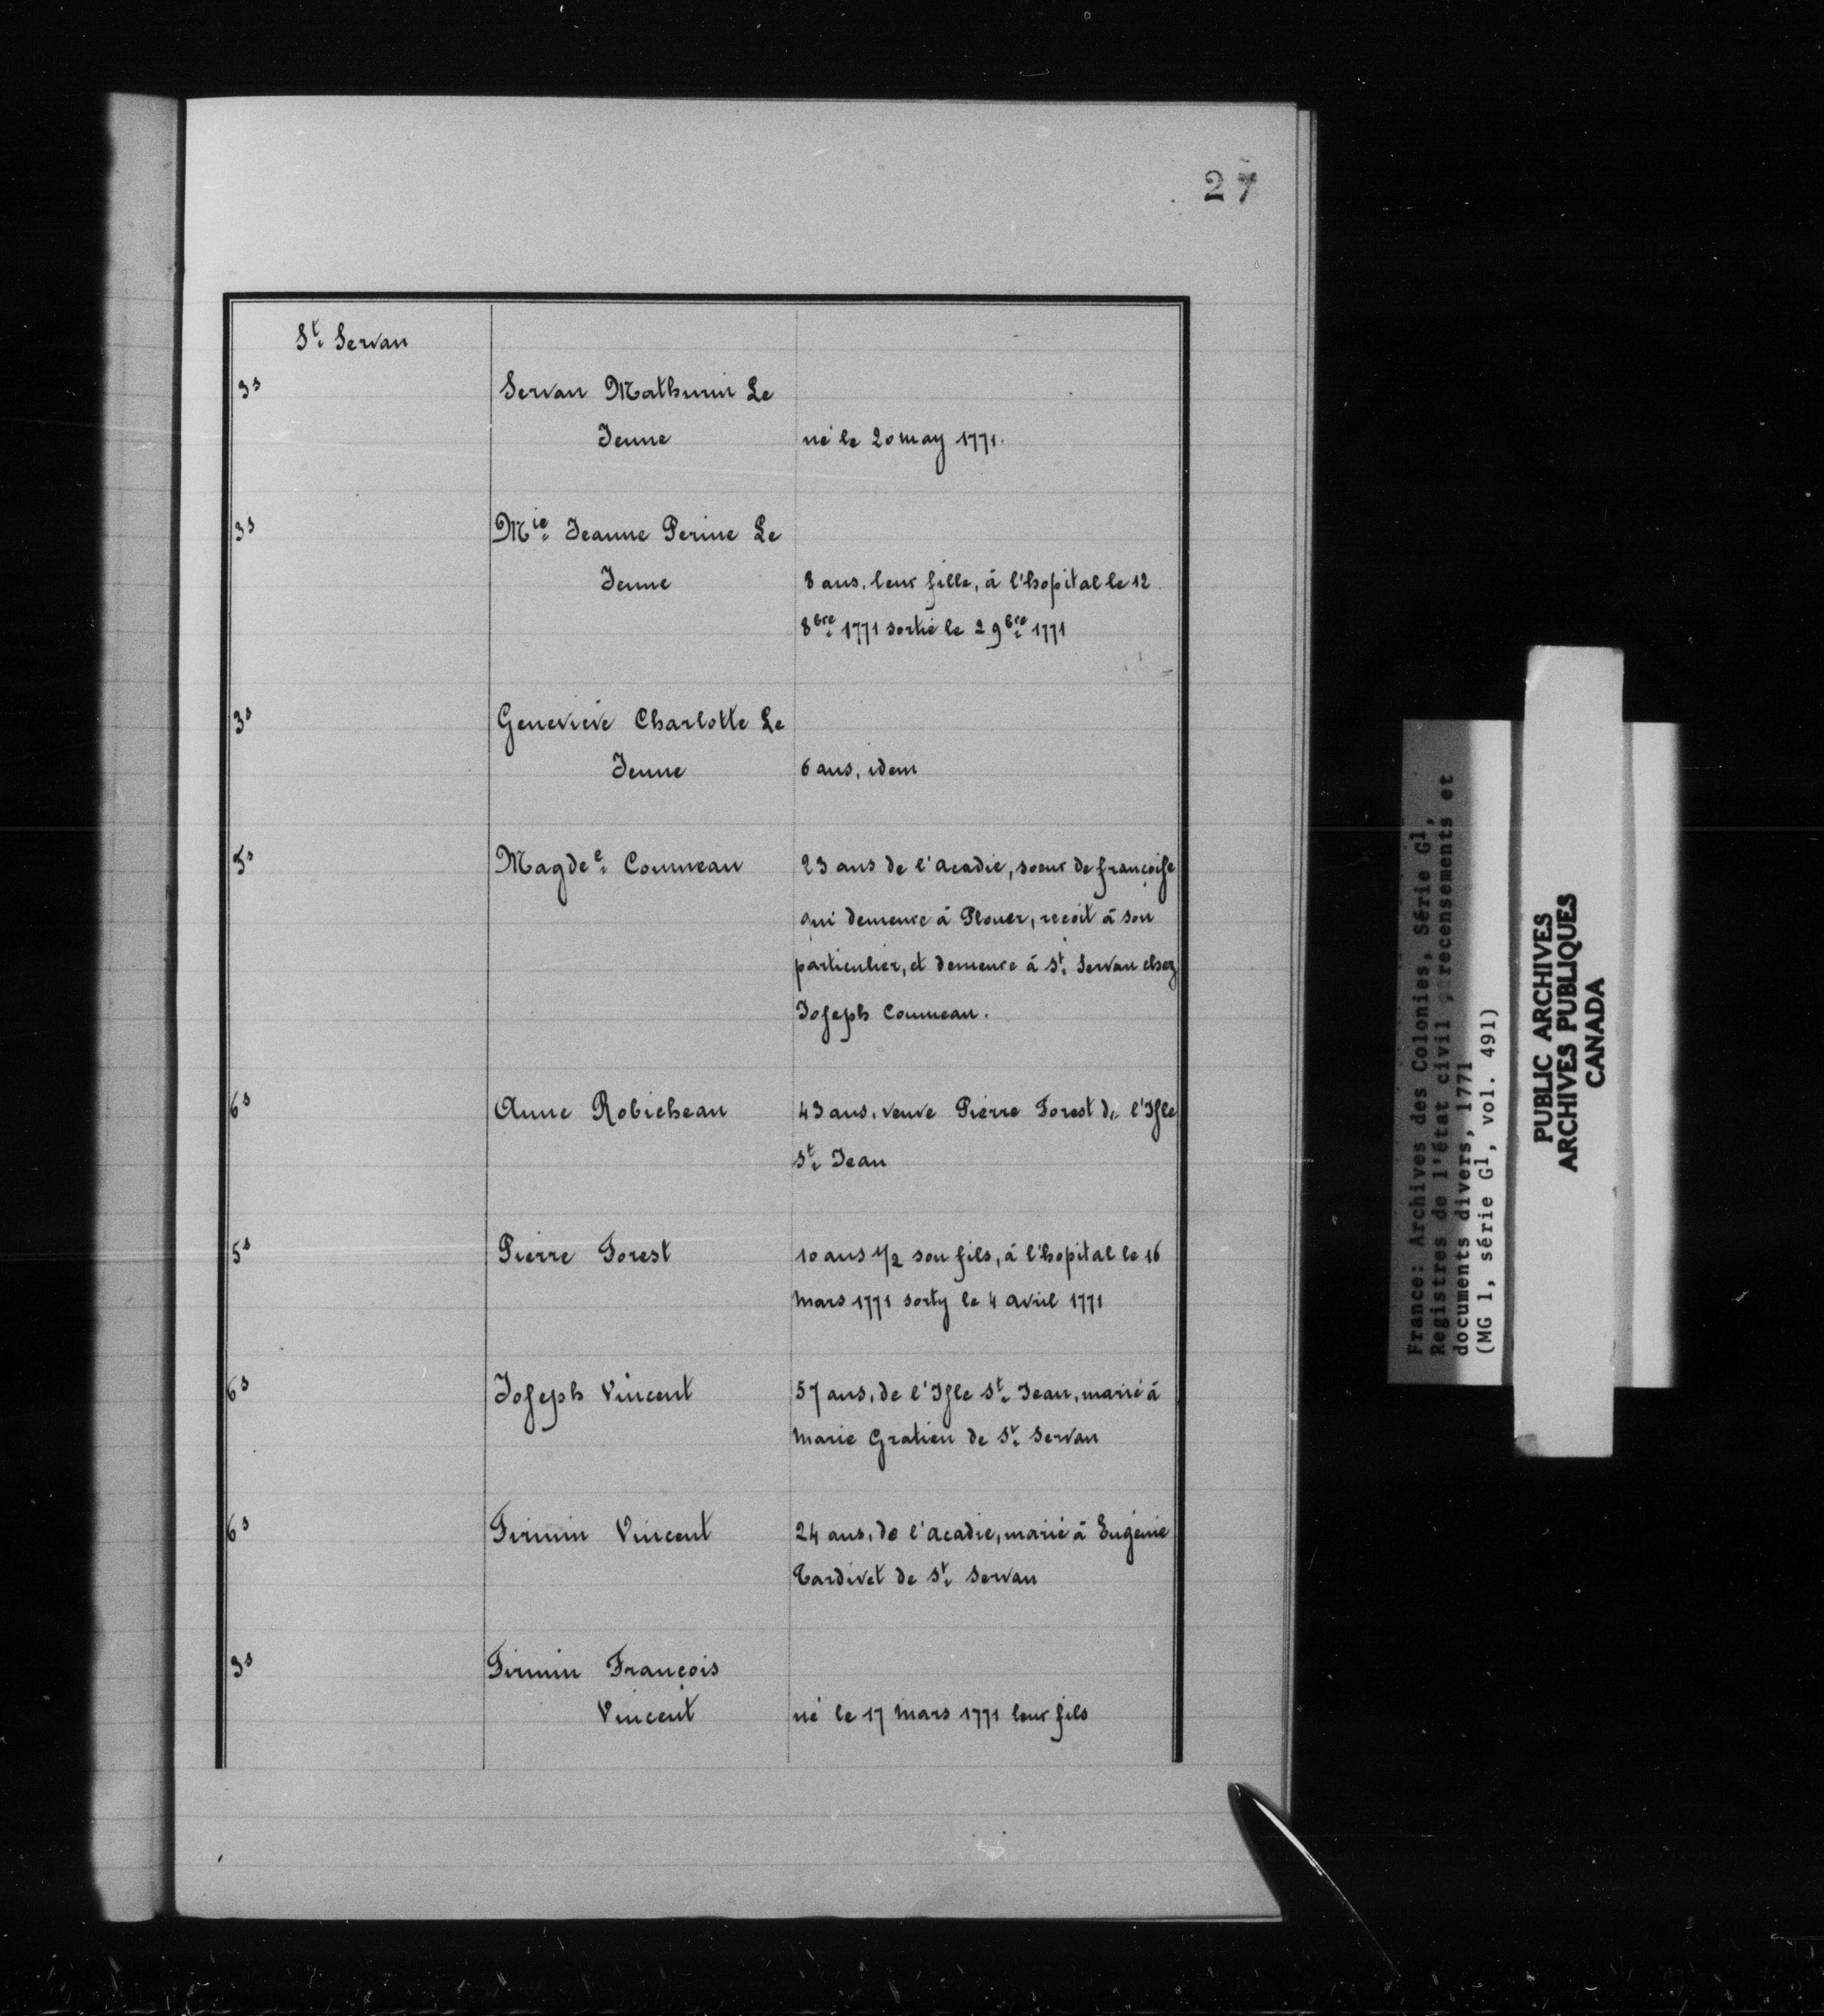 27
St. Servan
3s Servan Mathurin Le
Jeune né le 20 may 1771.
3s Mie. Jeanne Perine Le
Jeune 8 ans, leur fille, à l'hopital le 12
8bre. 1771 sortie le 2 9bre. 1771
3s Geneviève Charlotte Le
Jeune 6 ans, idem
5s Magdee. Commeau 23 ans de l'acadie, soeur de françoise
qui demeure à Plouer, reçoit à son
particulier, et demeure à St. Servan chez
Joseph Commeau.
6s Anne Robicheau 43 ans, veuve Pierre Forest de l'Isle
St. Jean
5s Pierre Forest 10 ans 1/2 son fils, à l'hopital le 16
Mars 1771 sorty le 4 avril 1771
6s Joseph Vincent 57 ans, de l'Isle St. Jean, marié à
Marie Gratien de St. Servan
6s Firmin Vincent 24 ans, de l'acadie, marié à Eugénie
Tardivet de St. Servan
3s Firmin François
Vincent né le 17 Mars 1771 leur fils
France: Archives des Colonies, Série G1,
Registres de l'état civil, recensements et
documents divers, 1771
(MG 1, série G1, vol. 491)
PUBLIC ARCHIVES
ARCHIVES PUBLIQUES
CANADA